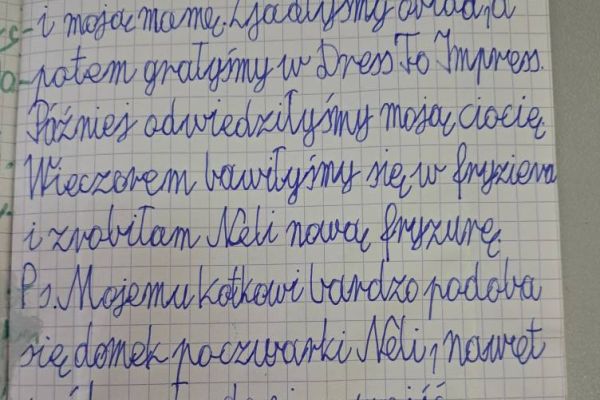 i moją mamę. Zjadłyśmy obiad, a
potem grałyśmy w Dress To Impress.
Później odwiedziłyśmy moją ciocię.
Wieczorem bawiłyśmy się w fryziera
i zrobiłam Neli nową fryzurę.
Ps. Mojemu kotkowi bardzo podoba
się domek poczwarki Neli, nawet